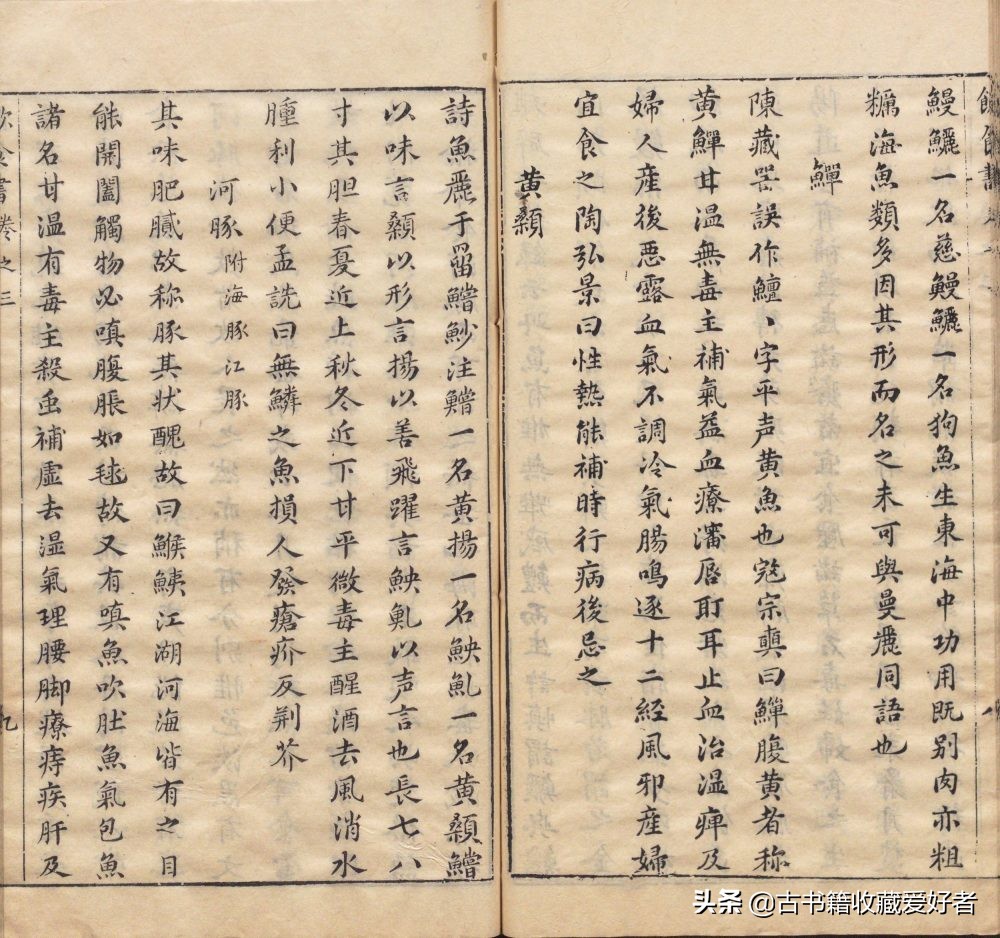 鰻鱺一名慈鰻鱺一名狗魚生東海中功用既别肉亦粗
糲海魚類多因其形而名之未可與曼麗同語也
鱓
陳藏噐誤作鱣鱣字平声黄魚也宼宗奭曰鱓腹黄者称
黄鱓甘温無毒主補氣益血療瀋唇耵耳止血治湿痺及
婦人産後悪露血氣不調冷氣腸鳴逐十二経風邪産婦
宜食之陶弘景曰性熱能補時行病後忌之
黄顙
詩魚麗于罶鱨魦注鱨一名黄揚一名鉠䰲一名黄顙鱨
以味言顙以形言揚以善飛躍言鉠䰲以声言也長七八
寸其胆春夏近上秋冬近下甘平微毒主醒酒去風消水
腫利小便孟詵曰無鱗之魚損人發瘡疥反荆芥
河豚附海豚江豚
其味肥膩故称豚其状醜故曰鯸鮧江湖河海皆有之目
能開闔觸物必嗔腹脹如毬故又有嗔魚吹肚魚氣包魚
諸名甘温有毒主殺虫補虚去湿氣理腰脚療痔疾肝及
飲食書卷之三
九
头条 @古书籍收藏爱好者